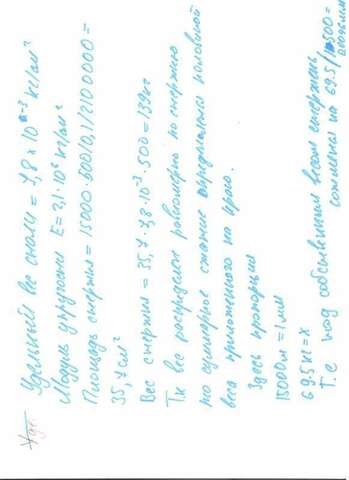 Удельный вес стали = 7,8 × 10⁻³ кг/см³
Модуль упругости E = 2,1·10⁶ кг/см²
Площадь стержня = 15000·500/0,1/2100000 =
35,7 см²
Вес стержня = 35,7·7,8·10⁻³·500 = 139 кг
Т.к вес распределен равномерно по стержню
то суммарное сжатие определится половиной
веса приложенного на краю.
Здесь пропорция
15000 = 1 мм
69.5 кг = x
Т.е под собственным весом стержень
сожмется на 69.5/15000 =